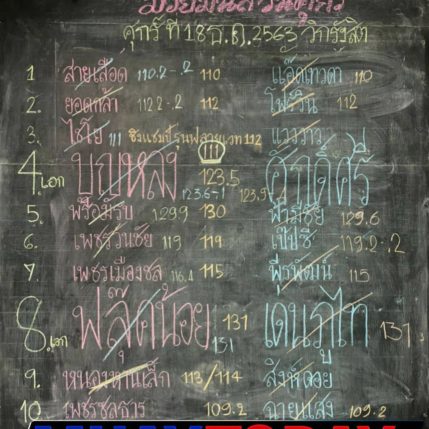 ศุกร์ที่ 18 ธ.ค. 2563 วิกรังสิต
1 สายเลือด 110.2-.2 110 แอ๊ดเทวดา 110
2. ยอดกล้า 112.2-.2 112 โฟร์วิน 112
3. ไชโย 111 ชิงแชมป์รุ่นฟลายเวท 112 แวววาว
4.เอก บุญหลง 123.5 ศักดิ์ศรี
123.6-1 123.9
5. พร้อมรบ 129.9 130 ฟ้ามีชัย 129.6
6. เพชรวันชัย 119 119 เป๊ปซี่ 119.2-.2
7. เพชรเมืองชล 116.4 115 พีรพัฒน์ 115
8.เอก ฟลุ๊คน้อย 131 เด่นภูไท 131
131
9. หนองหานเล็ก 113/114 สิงห์ดอย
10. เพชรชลธาร 109.2 ฉายแสง 109.2